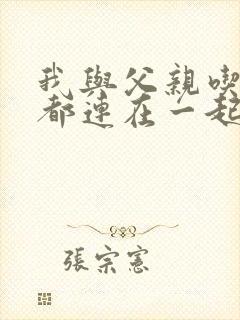 我與父親喫
都連在一起
張宗憲